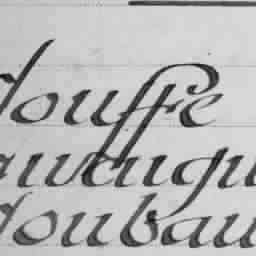 douffe
auvengu
doubau